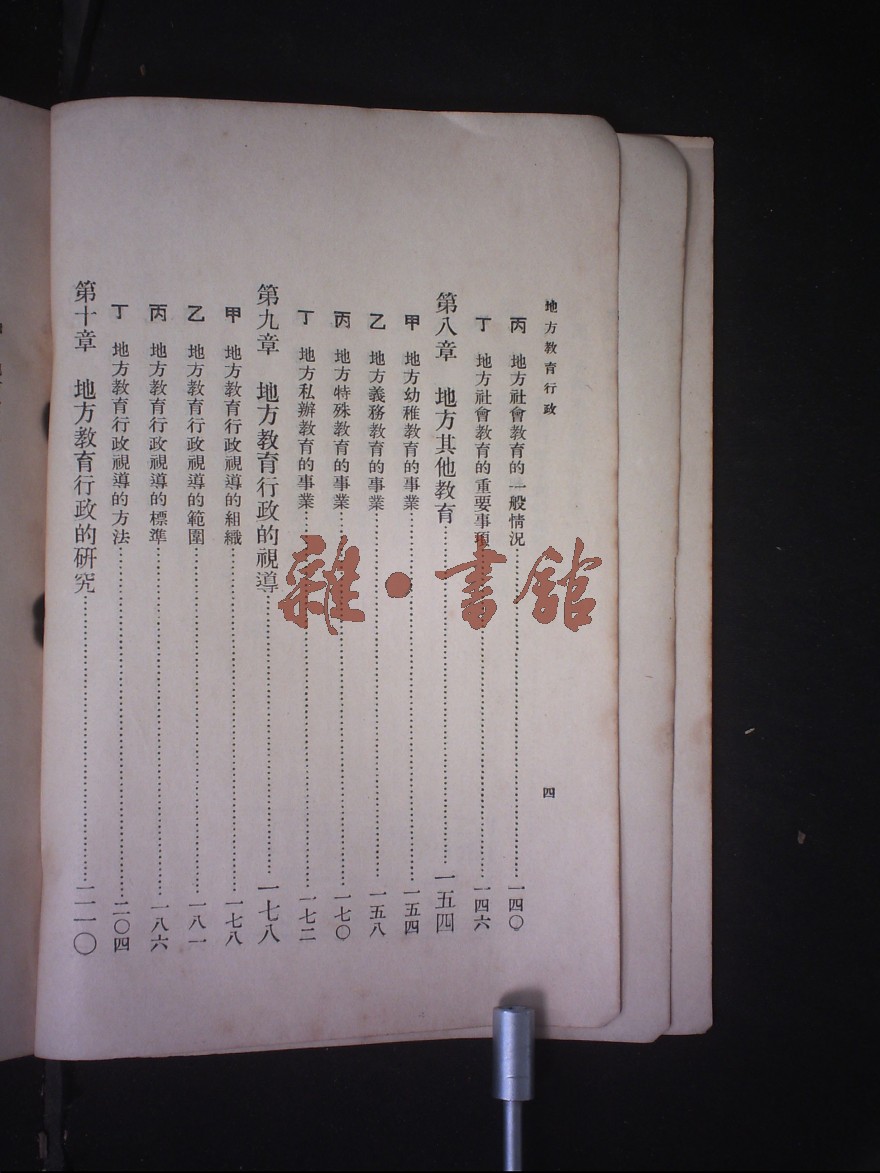 地方教育行政
四
丙 地方社會教育的一般情況……一四〇
丁 地方社會教育的重要事項……一四六
第八章 地方其他教育……一五四
甲 地方幼稚教育的事業……一五四
乙 地方義務教育的事業……一五八
丙 地方特殊教育的事業……一七〇
丁 地方私辦教育的事業……一七二
第九章 地方教育行政的視導……一七八
甲 地方教育行政視導的組織……一七八
乙 地方教育行政視導的範圍……一八一
丙 地方教育行政視導的標準……一八六
丁 地方教育行政視導的方法……二〇四
第十章 地方教育行政的研究……二一〇
雜·書館